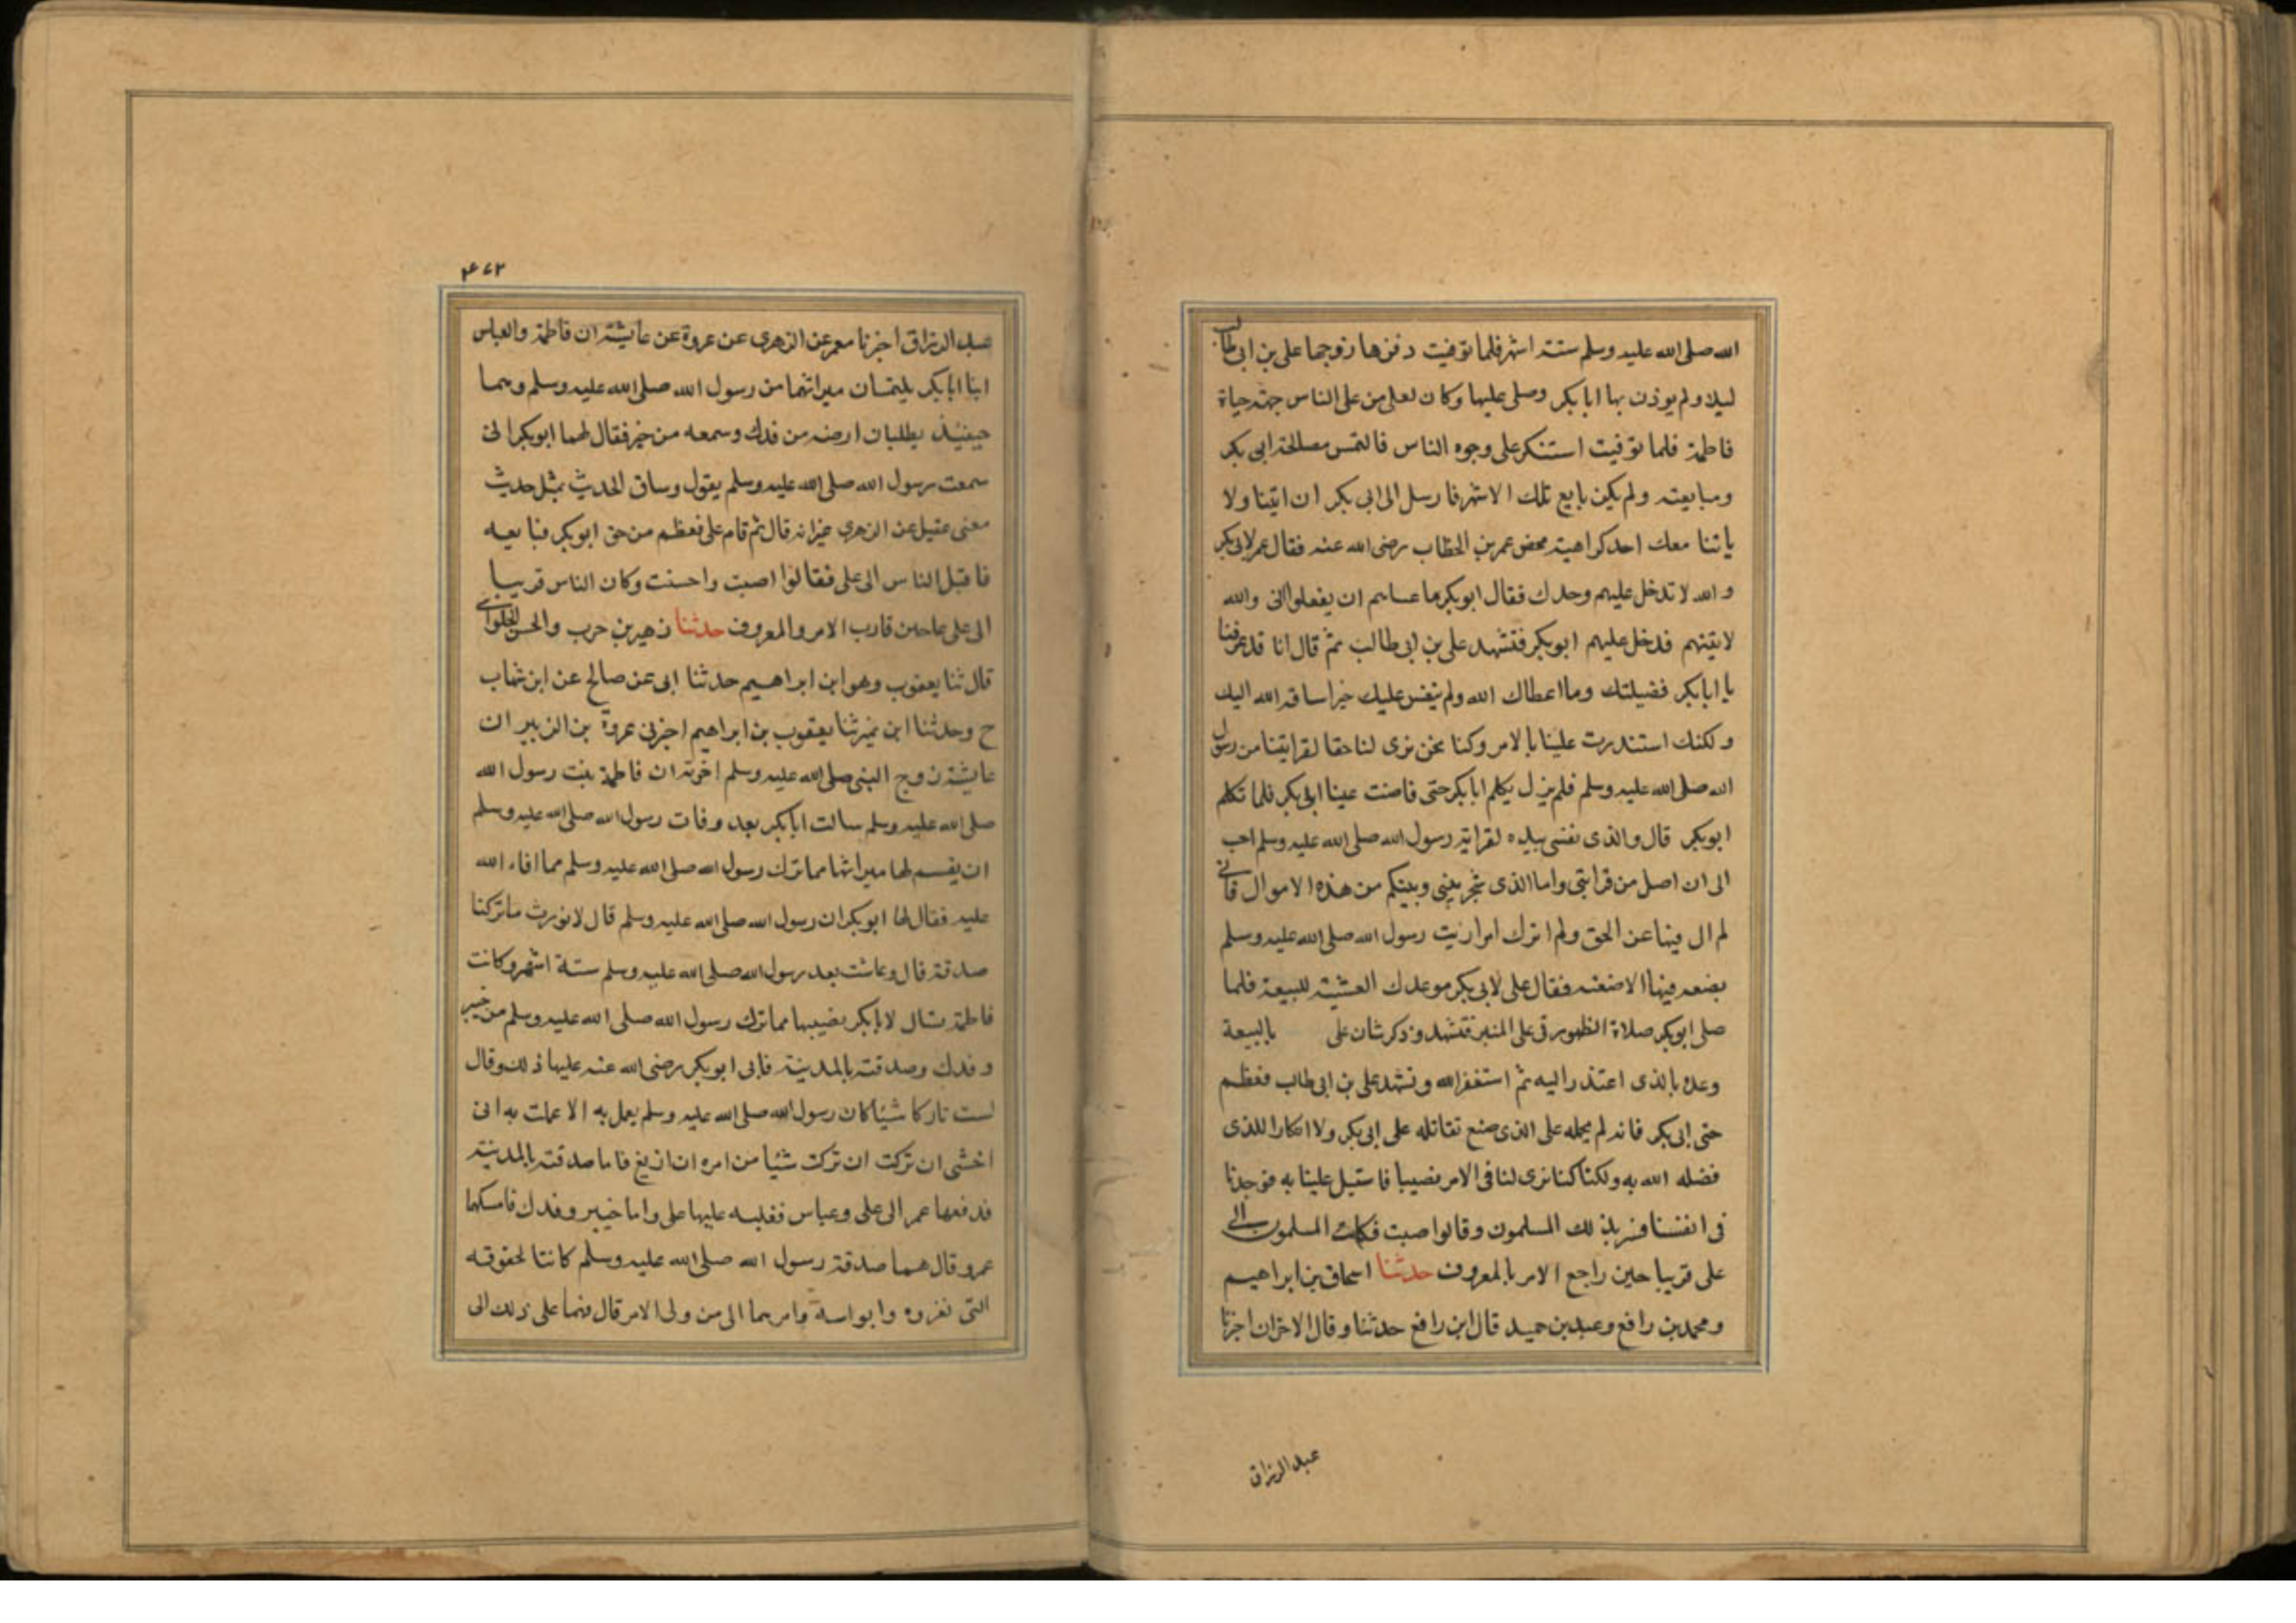 الله صلى الله عليه وسلم ستة اشهر فلما توفيت دفنها زوجها على بن ابى طالب
ليلا ولم يوذن بها ابا بكر وصلى عليها وكان لعلى من على الناس جهة حياة
فاطمة فلما توفيت استنكر على وجوه الناس فالتمس مصالحة ابى بكر
ومبايعته ولم يكن بايع تلك الاشهر فارسل الى ابى بكر ان ائتينا ولا
ياتنا معك احد كراهية محضر عمر بن الخطاب رضى الله عنه فقال عمر لابى بكر
والله لا تدخل عليهم وحدك فقال ابو بكر ما عساهم ان يفعلوا انى والله
لاتينهم فدخل عليهم ابو بكر فتشهد على بن ابى طالب ثم قال انا قد عرفنا
يا ابا بكر فضيلتك وما اعطاك الله ولم ننفس عليك خيرا ساقه الله اليك
ولكنك استندرت علينا بالامر وكنا نحن نرى لنا حقا لقرابتنا من رسول
الله صلى الله عليه وسلم فلم يزل يكلم ابا بكر حتى فاضت عينا ابى بكر فلما تكلم
ابو بكر قال والذى نفسى بيده لقرابة رسول الله صلى الله عليه وسلم احب
الى ان اصل من قرابتى واما الذى شجر بينى وبينكم من هذه الاموال فانى
لم ال فيها عن الحق ولم اترك امرا رايت رسول الله صلى الله عليه وسلم
يضعه فيها الا صنعته فقال على لابى بكر موعدك العشية للبيعة فلما
صلى ابو بكر صلاة الظهر رقى على المنبر فتشهد وذكر شان على بالبيعة
وعذره بالذى اعتذر اليه ثم استغفر الله وتشهد على بن ابى طالب فعظم
حق ابى بكر فانه لم يحمله على الذى صنع نفاثله على ابى بكر ولا انكارا للذى
فضله الله به ولكنا كنا نرى لنا فى الامر نصيبا فاستبد علينا به فوجدنا
فى انفسنا فسر بذلك المسلمون وقالوا اصبت فكان المسلمون الى
على قريبا حين راجع الامر بالمعروف حدثنا اسحاق بن ابراهيم
ومحمد بن رافع وعبد بن حميد قال ابن رافع حدثنا وقال الاخران اخبرنا
عبد الرزاق
عبد الرزاق اخبرنا معمر عن الزهرى عن عروة عن عايشة ان فاطمة والعباس
اتيا ابا بكر يلتمسان ميراثهما من رسول الله صلى الله عليه وسلم وهما
حينئذ يطلبان ارضه من فدك وسهمه من خيبر فقال لهما ابو بكر انى
سمعت رسول الله صلى الله عليه وسلم يقول وساق الحديث بمثل حديث
معنى عقيل عن الزهرى غير انه قال ثم قام على فعظم من حق ابو بكر فبايعه
فاقبل الناس الى على فقالوا اصبت واحسنت وكان الناس قريبا
الى على حين قارب الامر والمعروف حدثنا زهير بن حرب والحسن الحلوانى
قال ثنا يعقوب وهو ابن ابراهيم حدثنا ابى عن صالح عن ابن شهاب
ح وحدثنا ابن نمير ثنا يعقوب بن ابراهيم اخبرنى عروة بن الزبير ان
عايشة زوج النبى صلى الله عليه وسلم اخبرته ان فاطمة بنت رسول الله
صلى الله عليه وسلم سالت ابا بكر بعد وفات رسول الله صلى الله عليه وسلم
ان يقسم لها ميراثها مما ترك رسول الله صلى الله عليه وسلم مما افاء الله
عليه فقال لها ابو بكر ان رسول الله صلى الله عليه وسلم قال لا نورث ما تركنا
صدقة قال وعاشت بعد رسول الله صلى الله عليه وسلم ستة اشهر وكانت
فاطمة تسال لابا بكر نصيبها مما ترك رسول الله صلى الله عليه وسلم من خيبر
وفدك وصدقته بالمدينة فابى ابو بكر رضى الله عنه عليها ذلك وقال
لست تاركا شيئا كان رسول الله صلى الله عليه وسلم يعمل به الا عملت به انى
اخشى ان تركت ان تركت شيئا من امره ان ازيغ فاما صدقته بالمدينة
فدفعها عمر الى على وعباس فغلبه عليها على واما خيبر وفدك فامسكهما
عمر وقال هما صدقة رسول الله صلى الله عليه وسلم كانتا لحقوقه
التى تعزوه وابوابه وامرهما الى من ولى الامر قال فهما على ذلك الى